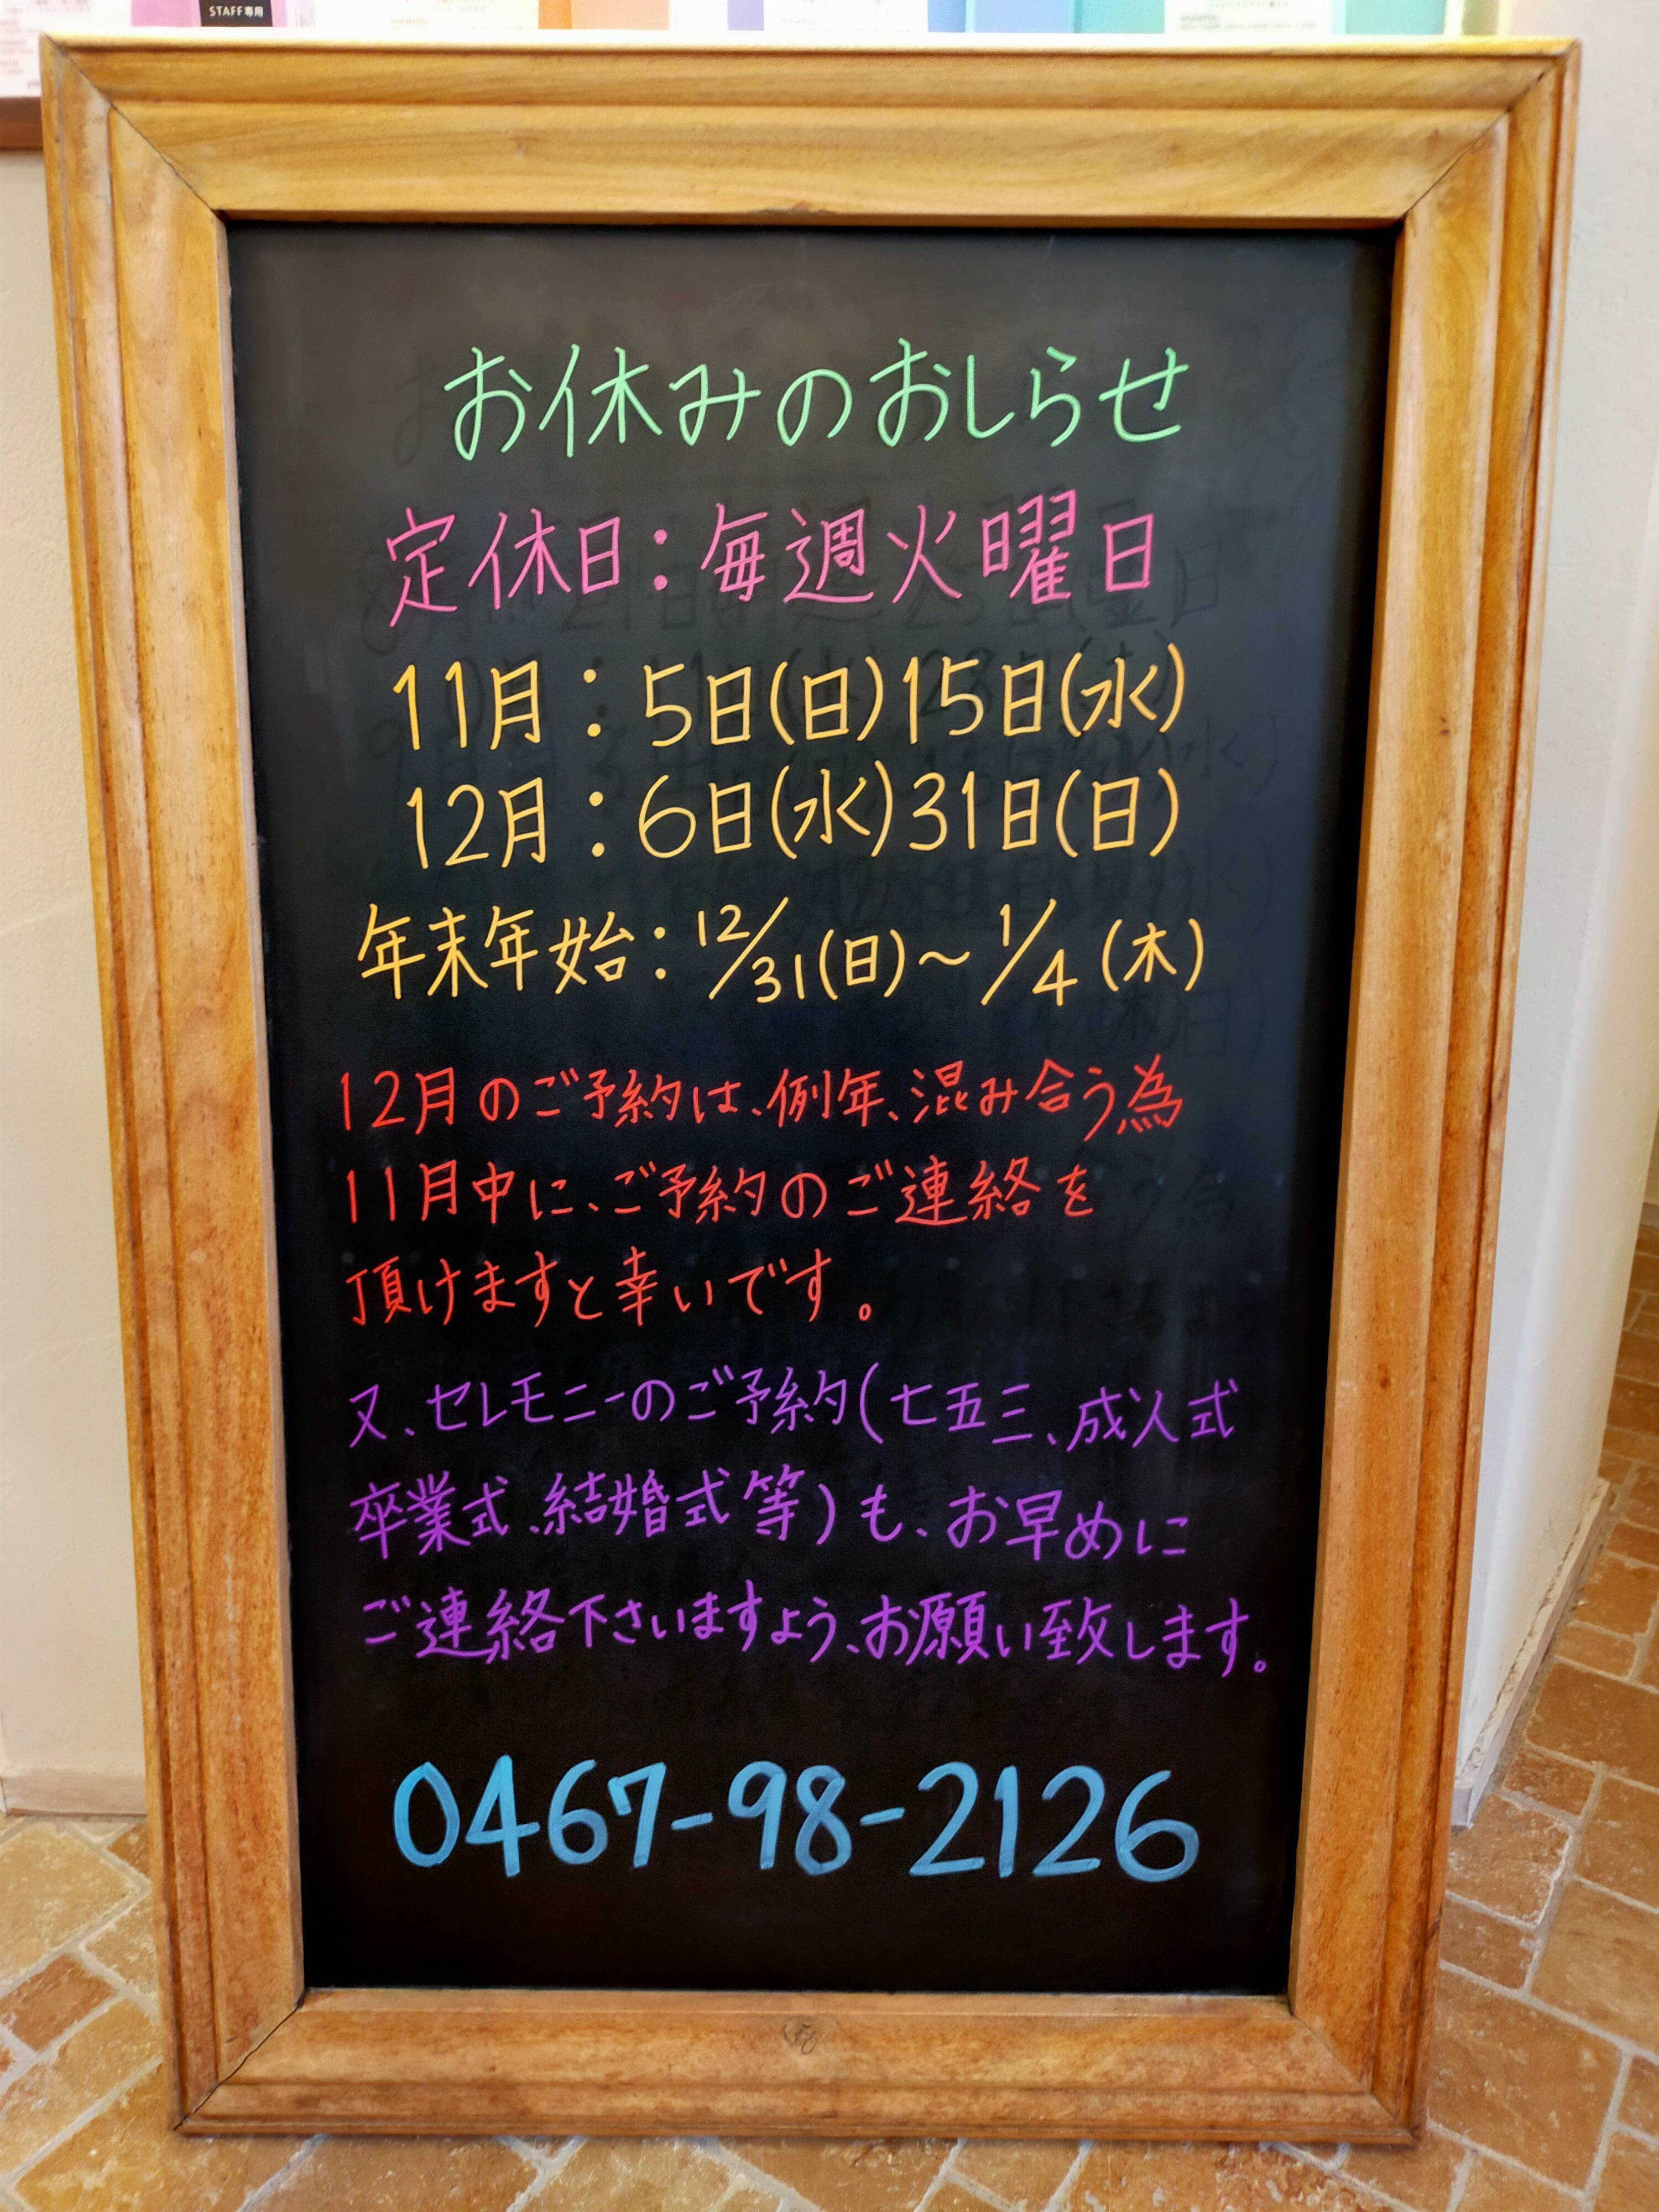 STAFF専用
お休みのおしらせ
定休日：毎週火曜日
11月：5日(日)15日(水)
12月：6日(水)31日(日)
年末年始：12/31(日)～1/4(木)
12月のご予約は、例年、混み合う為
11月中に、ご予約のご連絡を
頂けますと幸いです。
又、セレモニーのご予約(七五三、成人式
卒業式、結婚式等)も、お早めに
ご連絡下さいますよう、お願い致します。
0467-98-2126